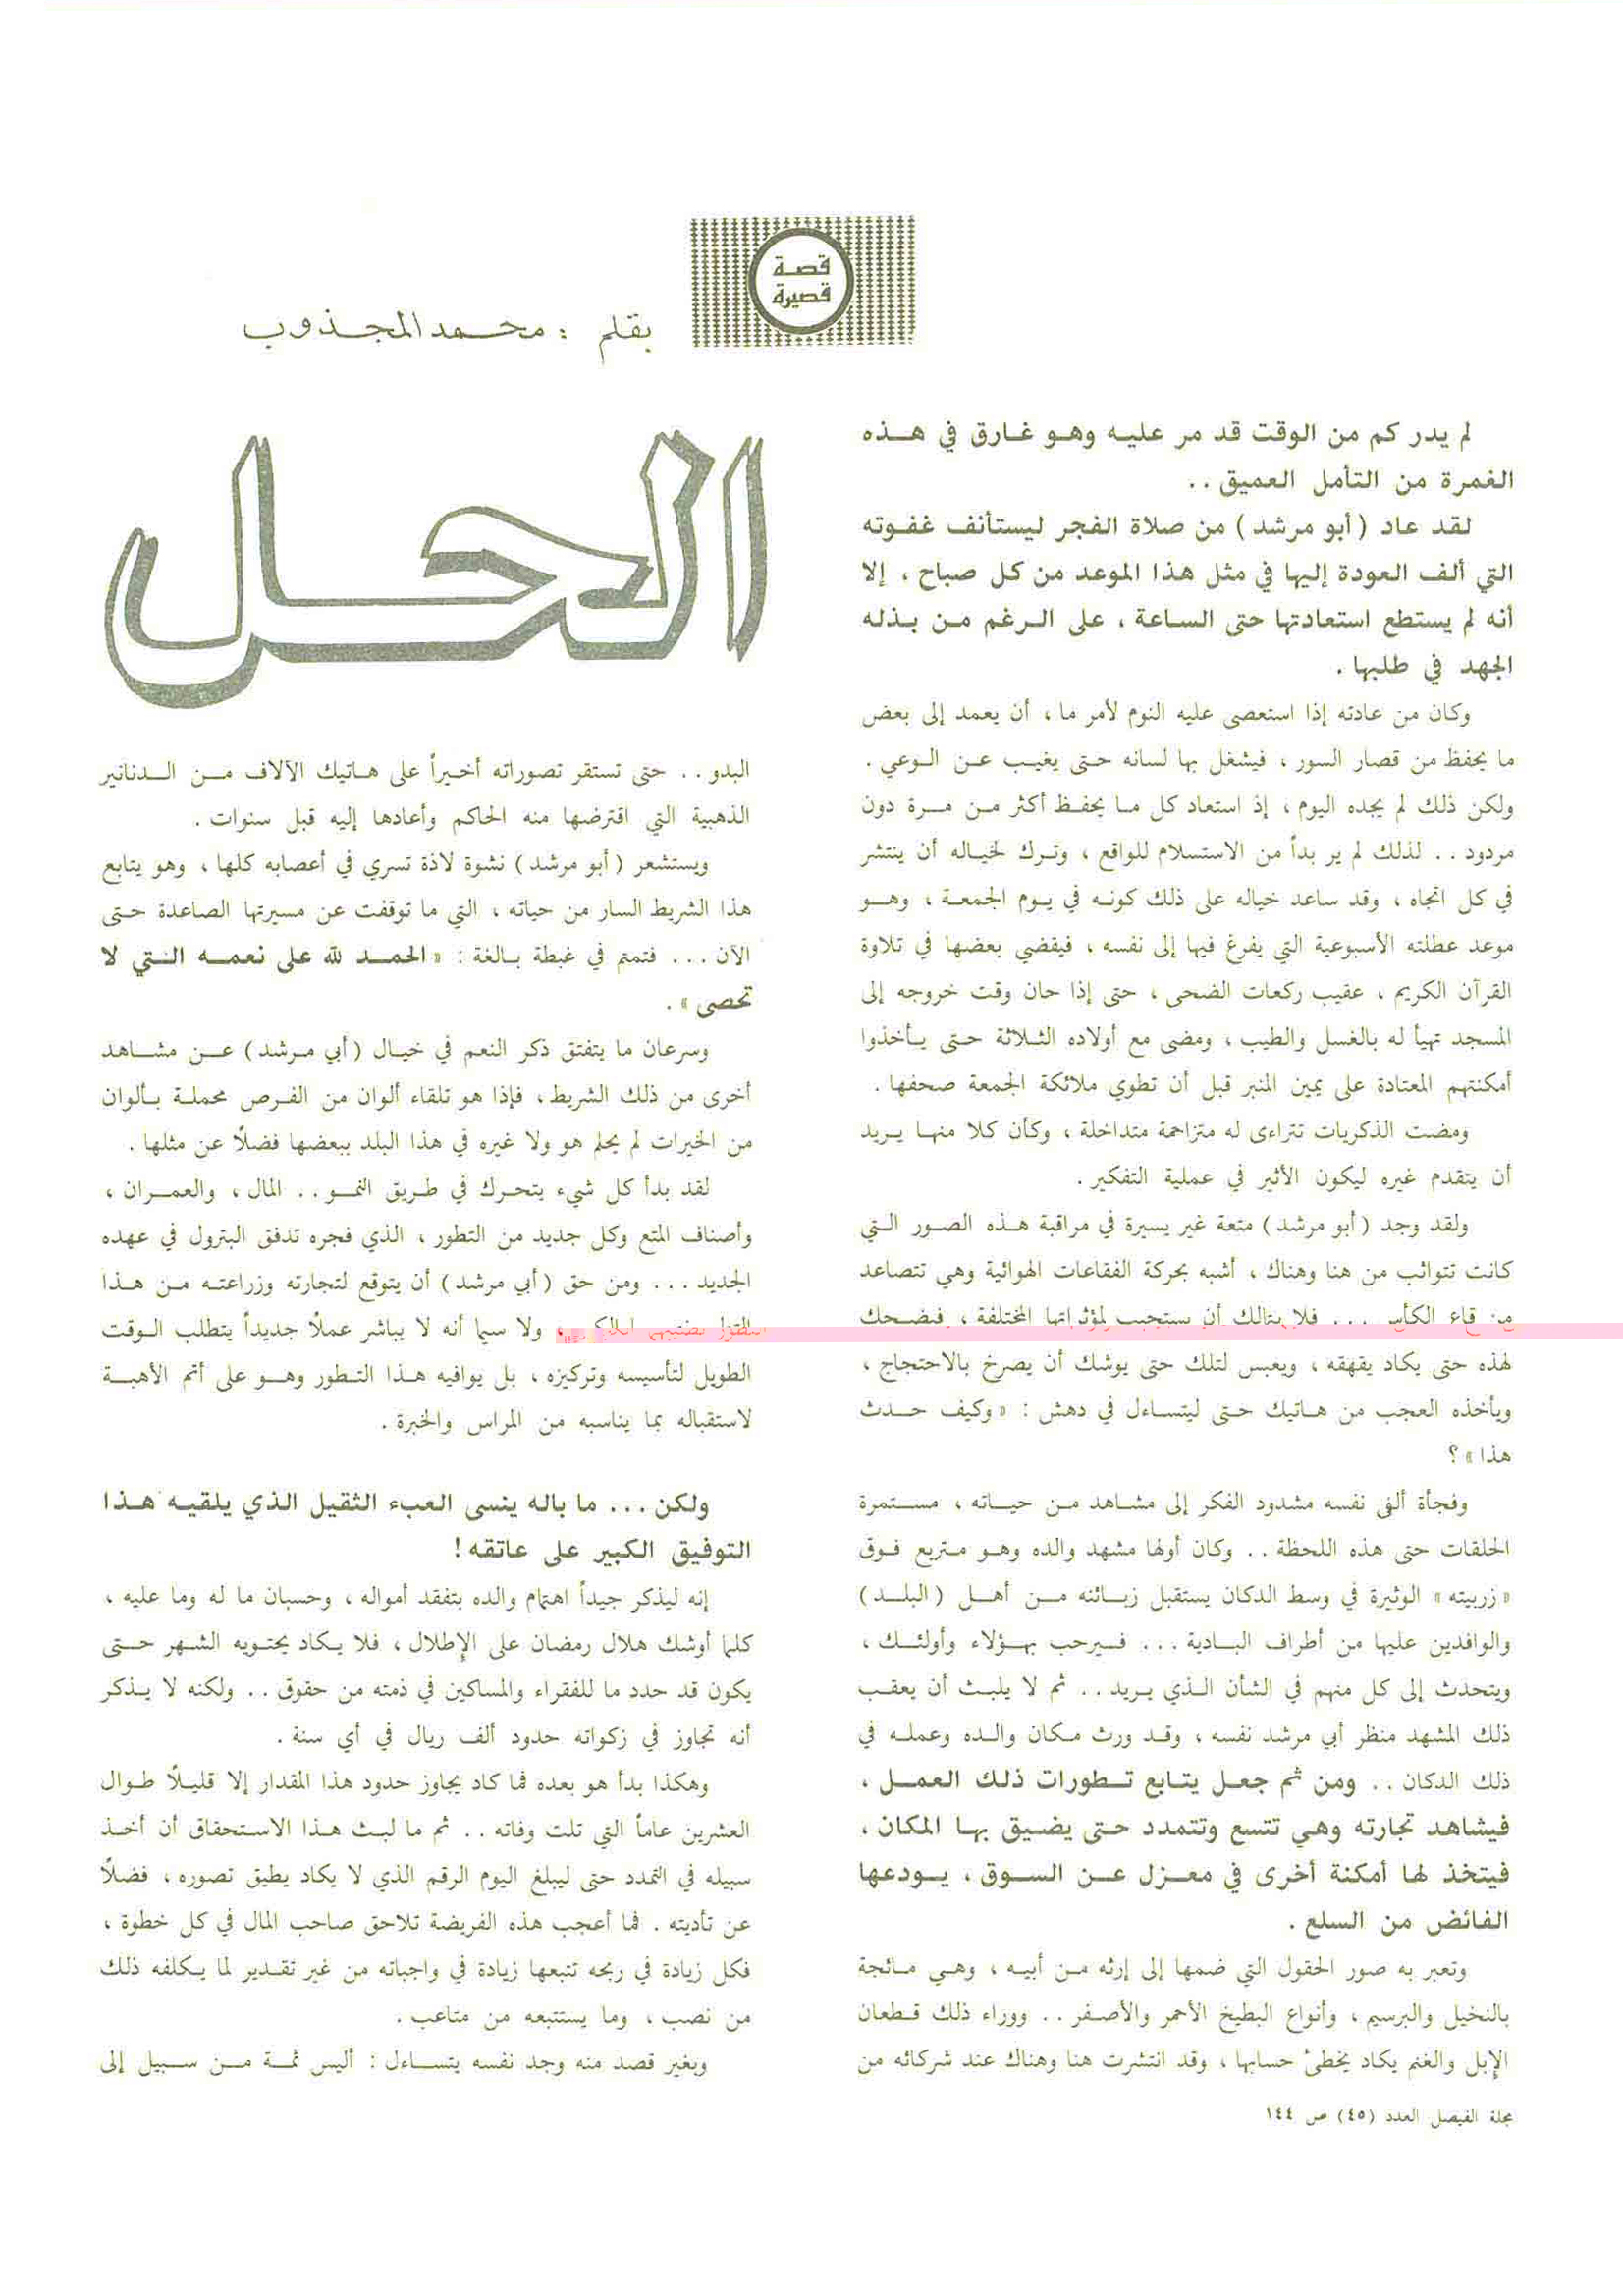 قصة
قصيرة
بقلم : محمد المجذوب
الحل
لم يدر كم من الوقت قد مر عليه وهو غارق في هذه
الغمرة من التأمل العميق ..
لقد عاد (أبو مرشد) من صلاة الفجر ليستأنف غفوته
التي ألف العودة إليها في مثل هذا الموعد من كل صباح ، إلا
أنه لم يستطع استعادتها حتى الساعة ، على الرغم من بذله
الجهد في طلبها .
وكان من عادته إذا استعصى عليه النوم لأمر ما ، أن يعمد إلى بعض
ما يحفظ من قصار السور ، فيشغل بها لسانه حتى يغيب عن الوعي .
ولكن ذلك لم يجده اليوم ، إذ استعاد كل ما يحفظ أكثر من مرة دون
مردود .. لذلك لم ير بداً من الاستسلام للواقع ، وترك لخياله أن ينتشر
في كل اتجاه ، وقد ساعد خياله على ذلك كونه في يوم الجمعة ، وهو
موعد عطلته الأسبوعية التي يفرغ فيها إلى نفسه ، فيقضي بعضها في تلاوة
القرآن الكريم ، عقيب ركعات الضحى ، حتى إذا حان وقت خروجه إلى
المسجد تهيأ له بالغسل والطيب ، ومضى مع أولاده الثلاثة حتى يأخذوا
أمكنتهم المعتادة على يمين المنبر قبل أن تطوي ملائكة الجمعة صحفها .
ومضت الذكريات تتراءى له متزاحمة متداخلة ، وكأن كلا منها يريد
أن يتقدم غيره ليكون الأثير في عملية التفكير .
ولقد وجد (أبو مرشد) متعة غير يسيرة في مراقبة هذه الصور التي
كانت تتواثب من هنا وهناك ، أشبه بحركة الفقاعات الهوائية وهي تتصاعد
من قاع الكأس ... فلا يتالك أن يستجيب لمؤثراتها المختلفة ، فيضحك
لهذه حتى يكاد يقهقه ، ويعبس لتلك حتى يوشك أن يصرخ بالاحتجاج ،
ويأخذه العجب من هاتيك حتى ليتساءل في دهش : «وكيف حدث
هذا»؟
وفجأة ألفى نفسه مشدود الفكر إلى مشاهد من حياته ، مستمرة
الحلقات حتى هذه اللحظة .. وكان أولها مشهد والده وهو متربع فوق
«زربيته» الوثيرة في وسط الدكان يستقبل زبائنه من أهل (البلد)
والوافدين عليها من أطراف البادية ... فيرحب بهؤلاء وأولئك ،
ويتحدث إلى كل منهم في الشأن الذي يريد .. ثم لا يلبث أن يعقب
ذلك المشهد منظر أبي مرشد نفسه ، وقد ورث مكان والده وعمله في
ذلك الدكان .. ومن ثم جعل يتابع تطورات ذلك العمل ،
فيشاهد تجارته وهي تتسع وتتمدد حتى يضيق بها المكان ،
فيتخذ لها أمكنة أخرى في معزل عن السوق ، يودعها
الفائض من السلع .
وتعبر به صور الحقول التي ضمها إلى إرثه من أبيه ، وهي مائجة
بالنخيل والبرسيم ، وأنواع البطيخ الأحمر والأصفر .. ووراء ذلك قطعان
الإبل والغنم يكاد يخطئ حسابها ، وقد انتشرت هنا وهناك عند شركائه من
البدو .. حتى تستقر تصوراته أخيراً على هاتيك الآلاف من الدنانير
الذهبية التي اقترضها منه الحاكم وأعادها إليه قبل سنوات .
ويستشعر (أبو مرشد) نشوة لاذة تسري في أعصابه كلها ، وهو يتابع
هذا الشريط السار من حياته ، التي ما توقفت عن مسيرتها الصاعدة حتى
الآن ... فتمتم في غبطة بالغة : «الحمد لله على نعمه التي لا
تحصى» .
وسرعان ما يتفتق ذكر النعم في خيال (أبي مرشد) عن مشاهد
أخرى من ذلك الشريط ، فإذا هو تلقاء ألوان من الفرص محملة بألوان
من الخيرات لم يحلم هو ولا غيره في هذا البلد ببعضها فضلاً عن مثلها .
لقد بدأ كل شيء يتحرك في طريق النمو .. المال ، والعمران ،
وأصناف المتع وكل جديد من التطور ، الذي فجره تدفق البترول في عهده
الجديد ... ومن حق (أبي مرشد) أن يتوقع لتجارته وزراعته من هذا
، ولا سيما أنه لا يباشر عملاً جديداً يتطلب الوقت
الطويل لتأسيسه وتركيزه ، بل يوافيه هذا التطور وهو على أتم الأهبة
لاستقباله بما يناسبه من المراس والخبرة .
ولكن ... ما باله ينسى العبء الثقيل الذي يلقيه هذا
التوفيق الكبير على عاتقه !
إنه ليذكر جيداً اهتمام والده بتفقد أمواله ، وحسبان ما له وما عليه ،
كلما أوشك هلال رمضان على الإطلال ، فلا يكاد يحتويه الشهر حتى
يكون قد حدد ما للفقراء والمساكين في ذمته من حقوق .. ولكنه لا يذكر
أنه تجاوز في زكواته حدود ألف ريال في أي سنة .
وهكذا بدأ هو بعده فما كاد يجاوز حدود هذا المقدار إلا قليلاً طوال
العشرين عاماً التي تلت وفاته .. ثم ما لبث هذا الاستحقاق أن أخذ
سبيله في التمدد حتى ليبلغ اليوم الرقم الذي لا يكاد يطيق تصوره ، فضلاً
عن تأديته . فما أعجب هذه الفريضة تلاحق صاحب المال في كل خطوة ،
فكل زيادة في ربحه تتبعها زيادة في واجباته من غير تقدير لما يكلفه ذلك
من نصب ، وما يستتبعه من متاعب .
وبغير قصد منه وجد نفسه يتساءل : أليس ثمة من سبيل إلى
مجلة الفيصل العدد (٤٥) ص ١٤٤